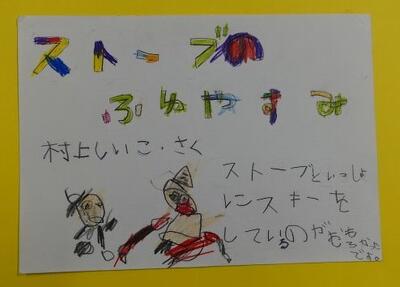 ストーブの
ふゆやすみ
村上しいこ・さく
ストーブといっしょ
にスキーを
しているのがおも
ろかった
です。